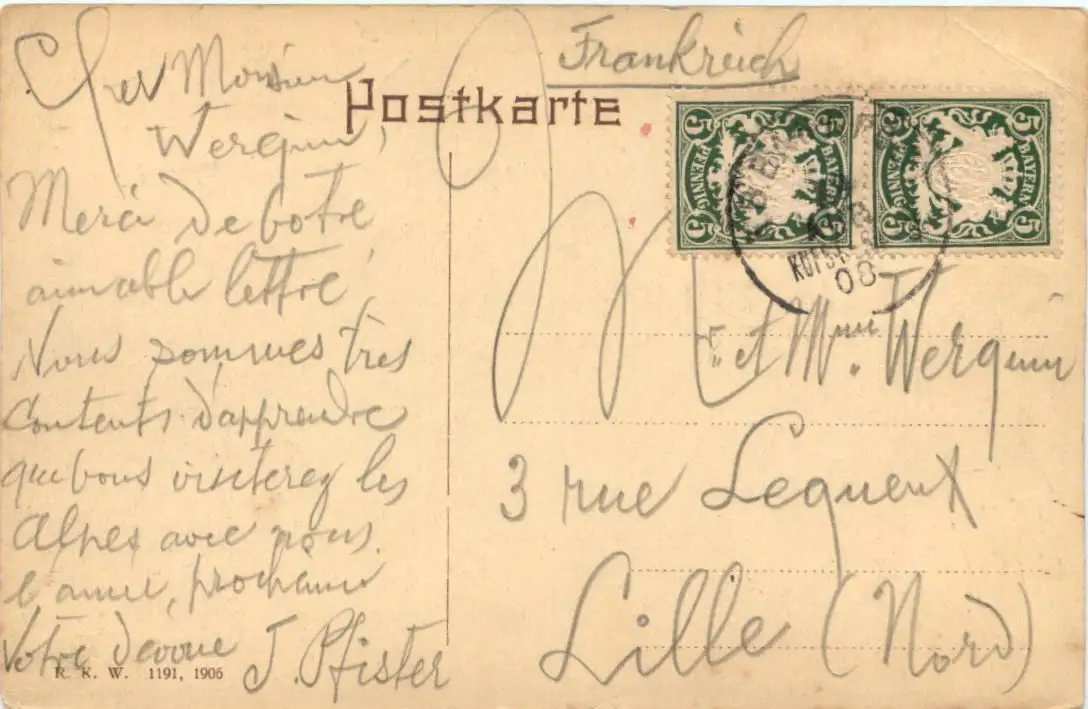 Cher Monsieur
Werquin,
Merci de botre
aimable lettre
Nous sommes très
contents d'apprendre
que bous visiterez les
Alpes avec nous
l'annee, prochaine
Votre dévoué J. Pfister
R. K. W. 1191, 1906
Postkarte
Frankreich
5 5
BAYERN
PFENNIG
5 5
5 5
BAYERN
PFENNIG
5 5
KUFST
08
M. et Mme. Werquin
3 rue Lequeux
Lille (Nord)